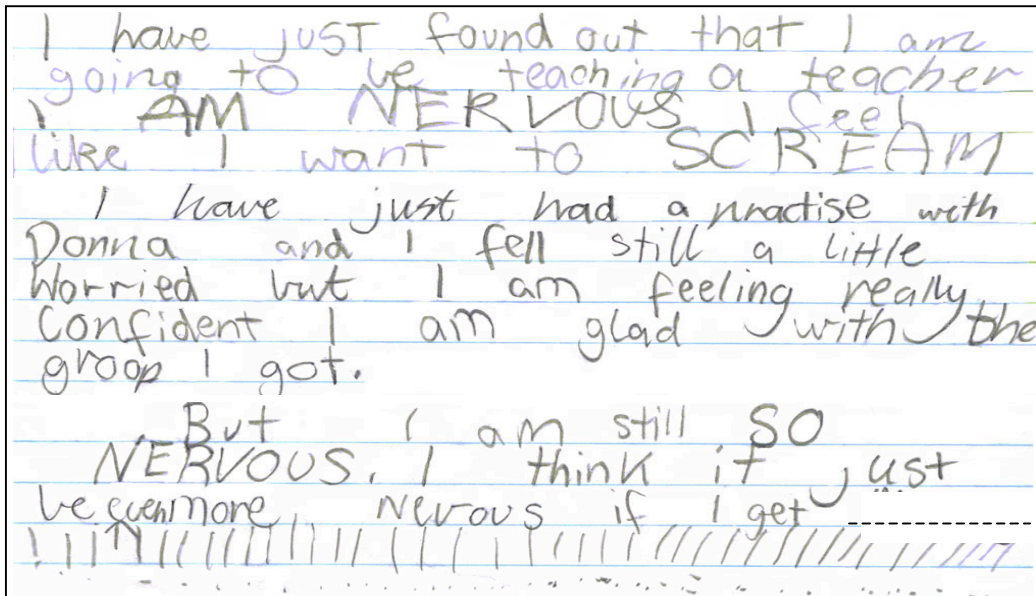 I have just found out that I am
going to be teaching a teacher
I AM NERVOUS I feel
like I want to SCREAM
I have just had a practise with
Donna and I fell still a little
Worried but I am feeling really
Confident I am glad with the
groop I got.
But I am still SO
NERVOUS. I think it just
be even more nervous if I get
!!!!!!!!!!!!!!!!!!!!!!!!!!!!!!!!!!!!!!!!